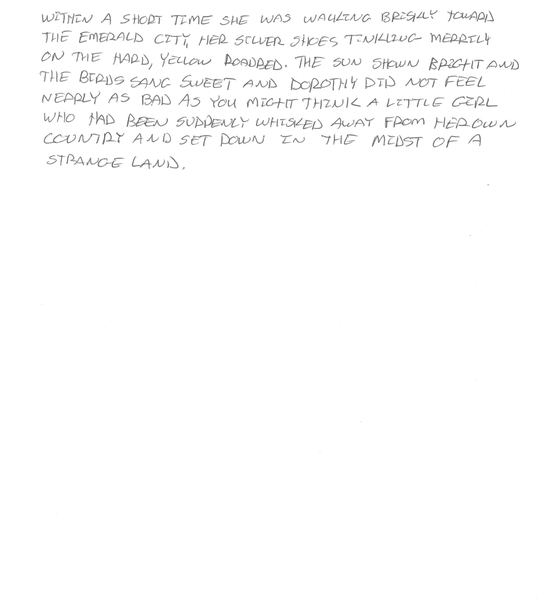 WITHIN A SHORT TIME SHE WAS WALKING BRISKLY TOWARD
THE EMERALD CITY, HER SILVER SHOES TINKLING MERRILY
ON THE HARD, YELLOW ROADBED. THE SUN SHOWN BRIGHT AND
THE BIRDS SANG SWEET AND DOROTHY DID NOT FEEL
NEARLY AS BAD AS YOU MIGHT THINK A LITTLE GIRL
WHO HAD BEEN SUDDENLY WHISKED AWAY FROM HER OWN
COUNTRY AND SET DOWN IN THE MIDST OF A
STRANGE LAND.